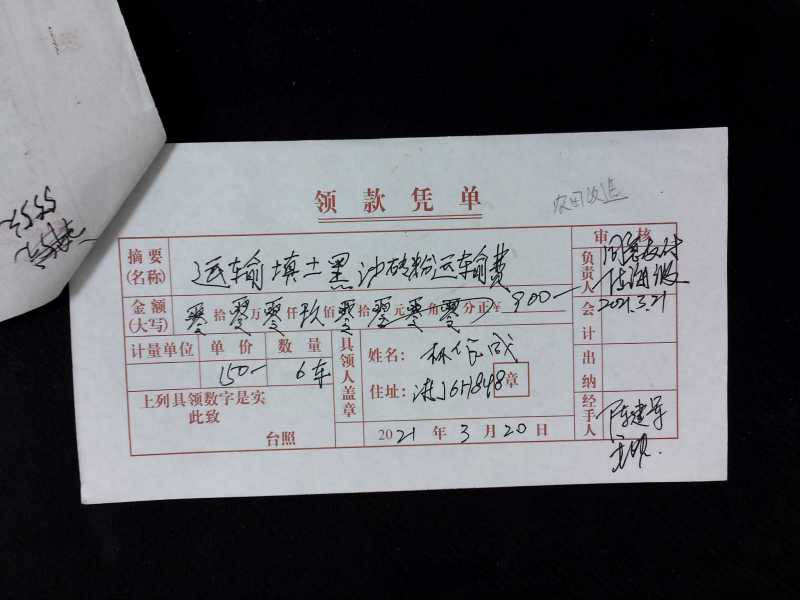 领款凭单
农田改造
摘要(名称) 运输填土黑沙砖粉运输费
审核
负责人 同意支付
2021.3.21
金额(大写) 零拾零万零仟玖佰零拾零元零角零分正¥900—
会计
计量单位 单价 数量
150— 6车
具领人盖章
姓名: 林
住址: 章
出纳
上列具领数字是实
此致
台照
2021年3月20日
经手人 陈建军